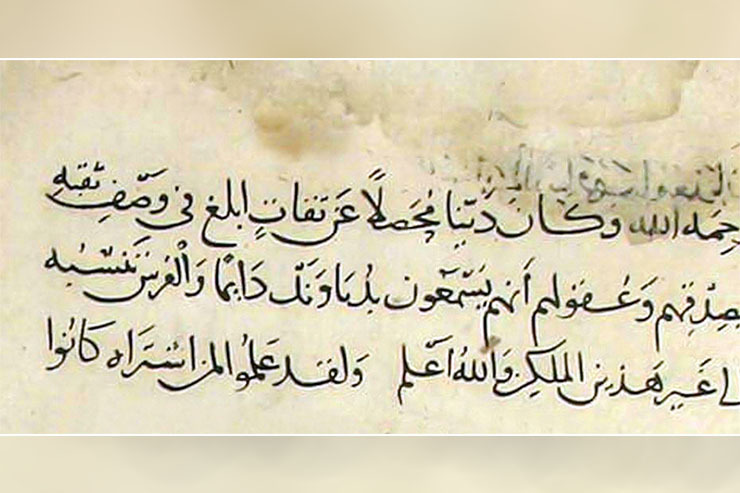 رحمه الله وكان دَيّنا مُحَصلاً عَن ثقاتٍ ابلغ في وصف ثقته
بصدقهم وَعُقولهم أنهم يَسمعون بدُباوَند دَايمًا وَالفُرسُ تنسبُه
غَير هَذين الملَكين وَاللهُ أعْلم وَلقد عَلمُوا لمن اشتراه كانُوا